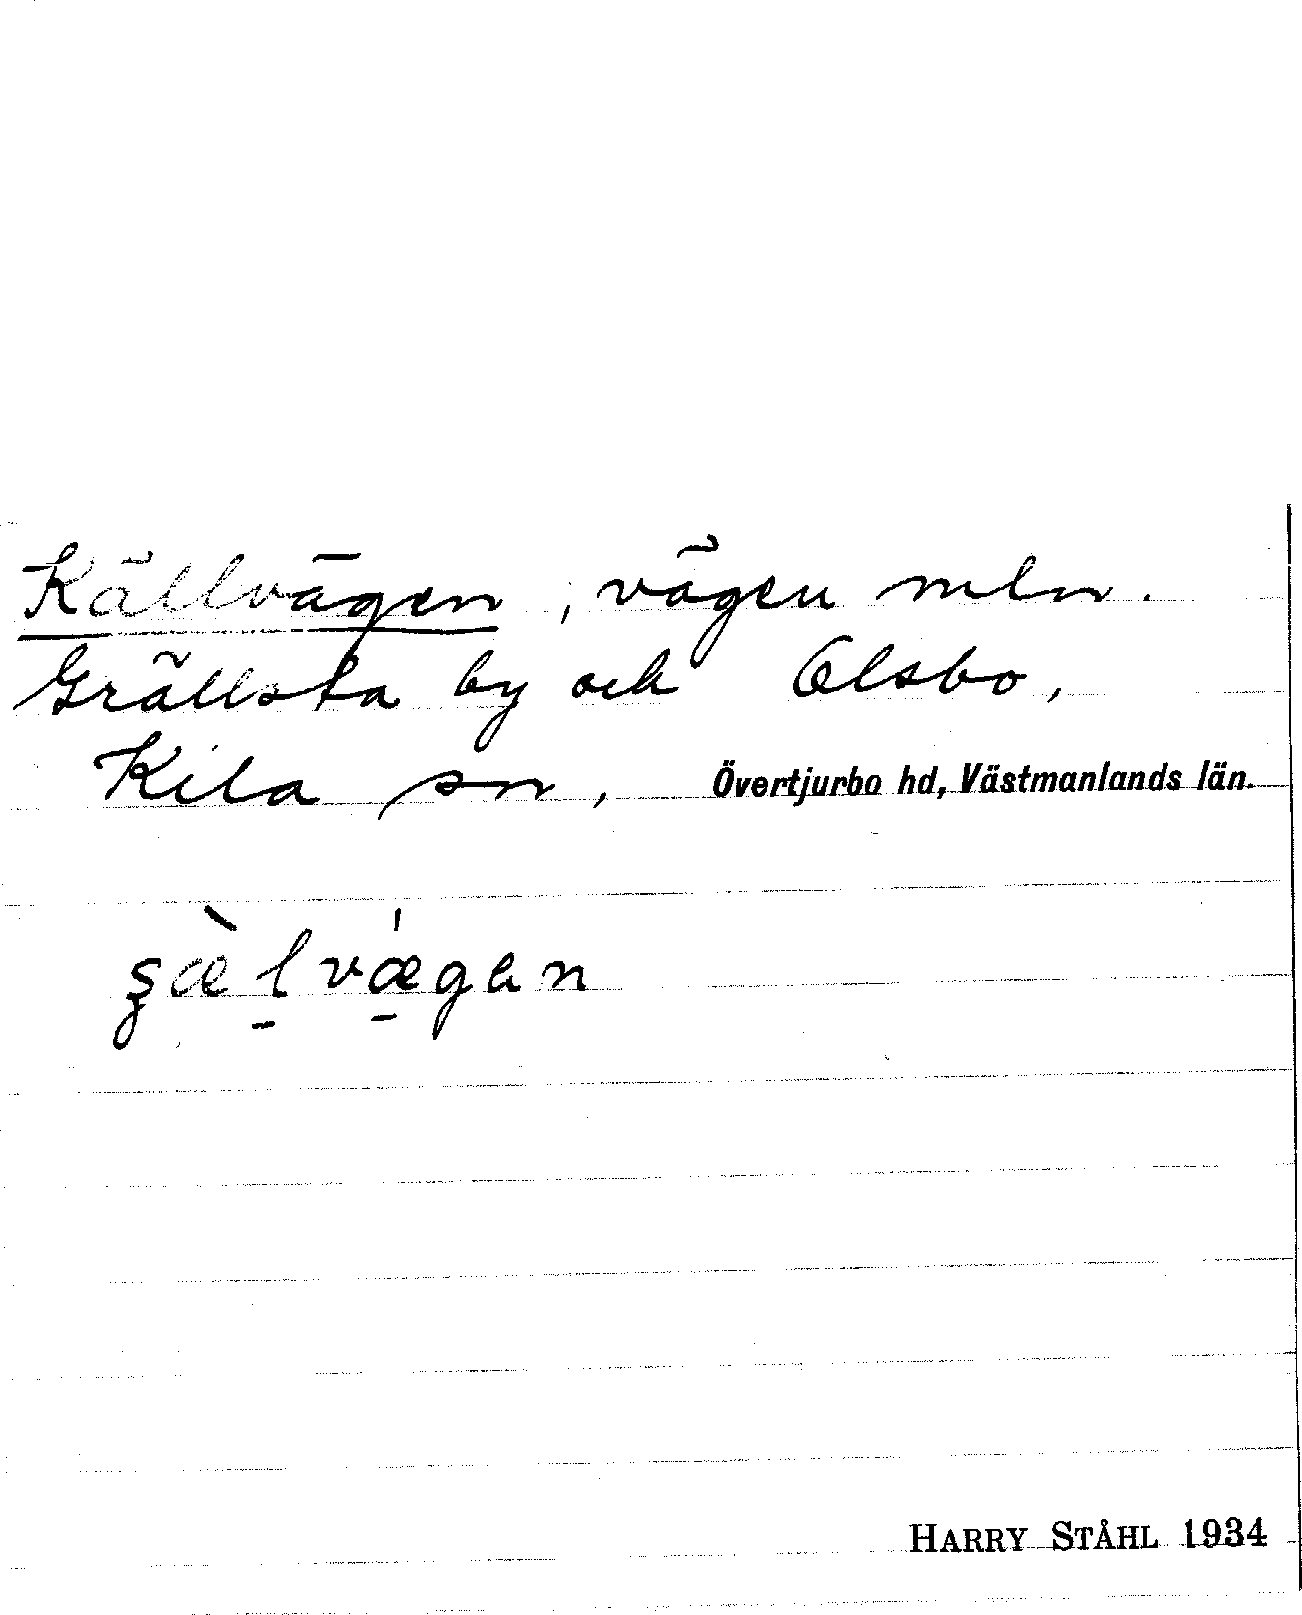 Källvägen, vägen mln.
Grällsta by och Olsbo,
Kila sn, Övertjurbo hd, Västmanlands län.
HARRY STÅHL 1934